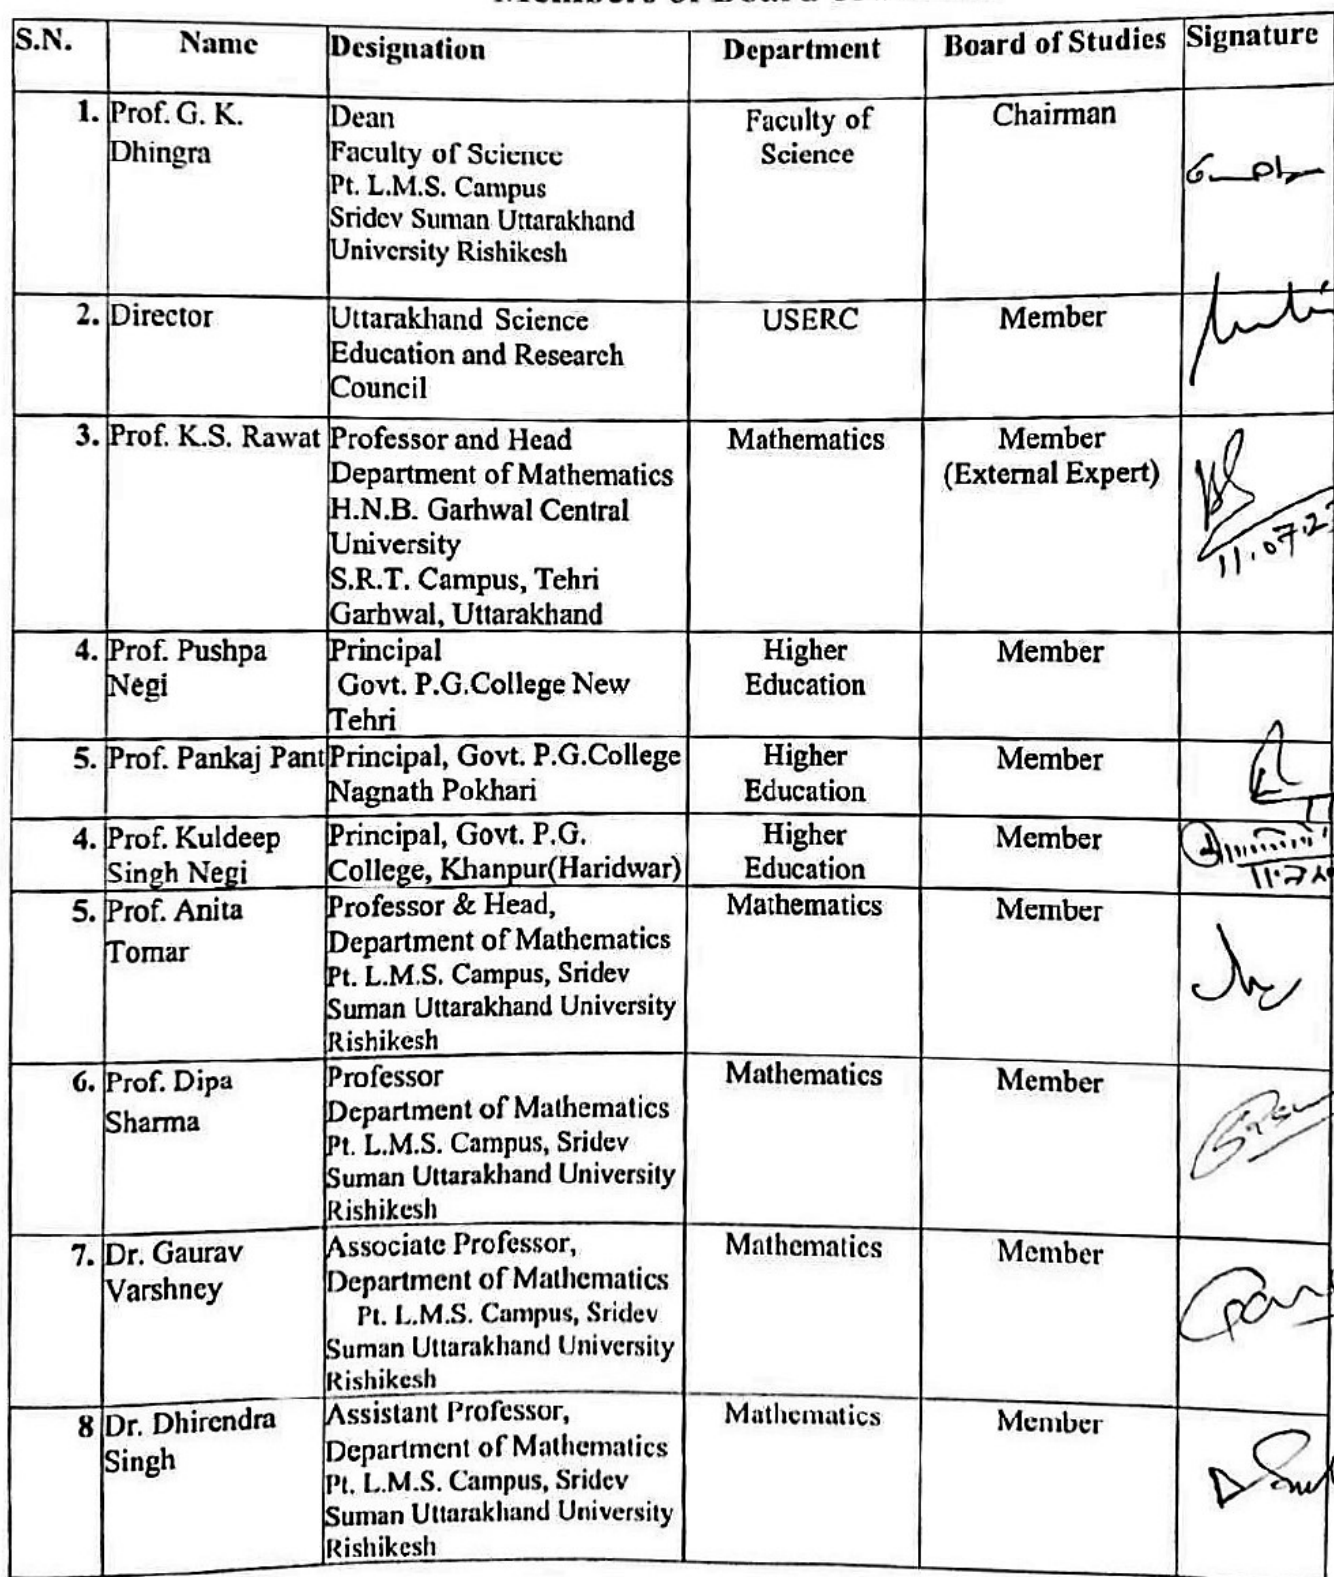 S.N. Name Designation Department Board of Studies Signature
1. Prof. G. K. Dhingra
Dean
Faculty of Science
Pt. L.M.S. Campus
Sridev Suman Uttarakhand
University Rishikesh
Faculty of
Science
Chairman
2. Director
Uttarakhand Science
Education and Research
Council
USERC
Member
3. Prof. K.S. Rawat
Professor and Head
Department of Mathematics
H.N.B. Garhwal Central
University
S.R.T. Campus, Tehri
Garhwal, Uttarakhand
Mathematics
Member
(External Expert)
11.07.23
4. Prof. Pushpa
Negi
Principal
Govt. P.G.College New
Tehri
Higher
Education
Member
5. Prof. Pankaj Pant
Principal, Govt. P.G.College
Nagnath Pokhari
Higher
Education
Member
4. Prof. Kuldeep
Singh Negi
Principal, Govt. P.G.
College, Khanpur(Haridwar)
Higher
Education
Member
5. Prof. Anita
Tomar
Professor & Head,
Department of Mathematics
Pt. L.M.S. Campus, Sridev
Suman Uttarakhand University
Rishikesh
Mathematics
Member
6. Prof. Dipa
Sharma
Professor
Department of Mathematics
Pt. L.M.S. Campus, Sridev
Suman Uttarakhand University
Rishikesh
Mathematics
Member
7. Dr. Gaurav
Varshney
Associate Professor,
Department of Mathematics
Pt. L.M.S. Campus, Sridev
Suman Uttarakhand University
Rishikesh
Mathematics
Member
8 Dr. Dhirendra
Singh
Assistant Professor,
Department of Mathematics
Pt. L.M.S. Campus, Sridev
Suman Uttarakhand University
Rishikesh
Mathematics
Member